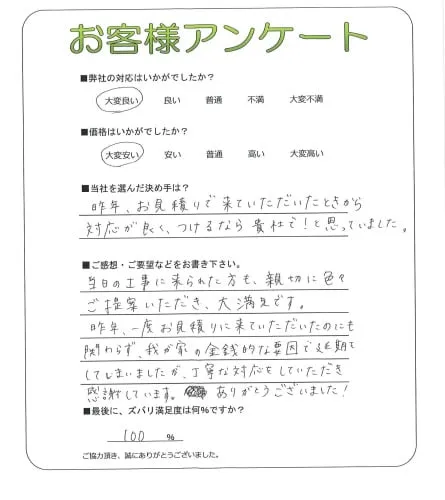 お客様アンケート
■弊社の対応はいかがでしたか？
大変良い 良い 普通 不満 大変不満
■価格はいかがでしたか？
大変安い 安い 普通 高い 大変高い
■当社を選んだ決め手は？
昨年、お見積りで来ていただいたときから
対応が良く、つけるなら貴社で！と思っていました。
■ご感想・ご要望などをお書き下さい。
当日の工事に来られた方も、親切に色々
ご提案いただき、大満足です。
昨年、一度お見積りに来ていただいたのにも
関わらず、我が家の金銭的な要因で延期を
してしまいましたが、丁寧な対応をしていただき
感謝しています。 ありがとうございました！
■最後に、ズバリ満足度は何％ですか？
100 %
ご協力頂き、誠にありがとうございました。